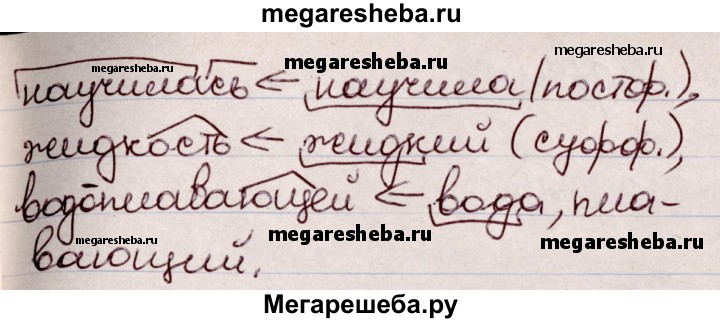 megaresheba.ru
megaresheba.ru
megaresheba.ru megaresheba.ru
научилась ← научила (постф.),
жидкость ← жидкий (суфф.),
водоплавающей ← вода, пла-
megaresheba.ru megaresheba.ru megaresheba.ru
вающий.
Мегарешеба.ру